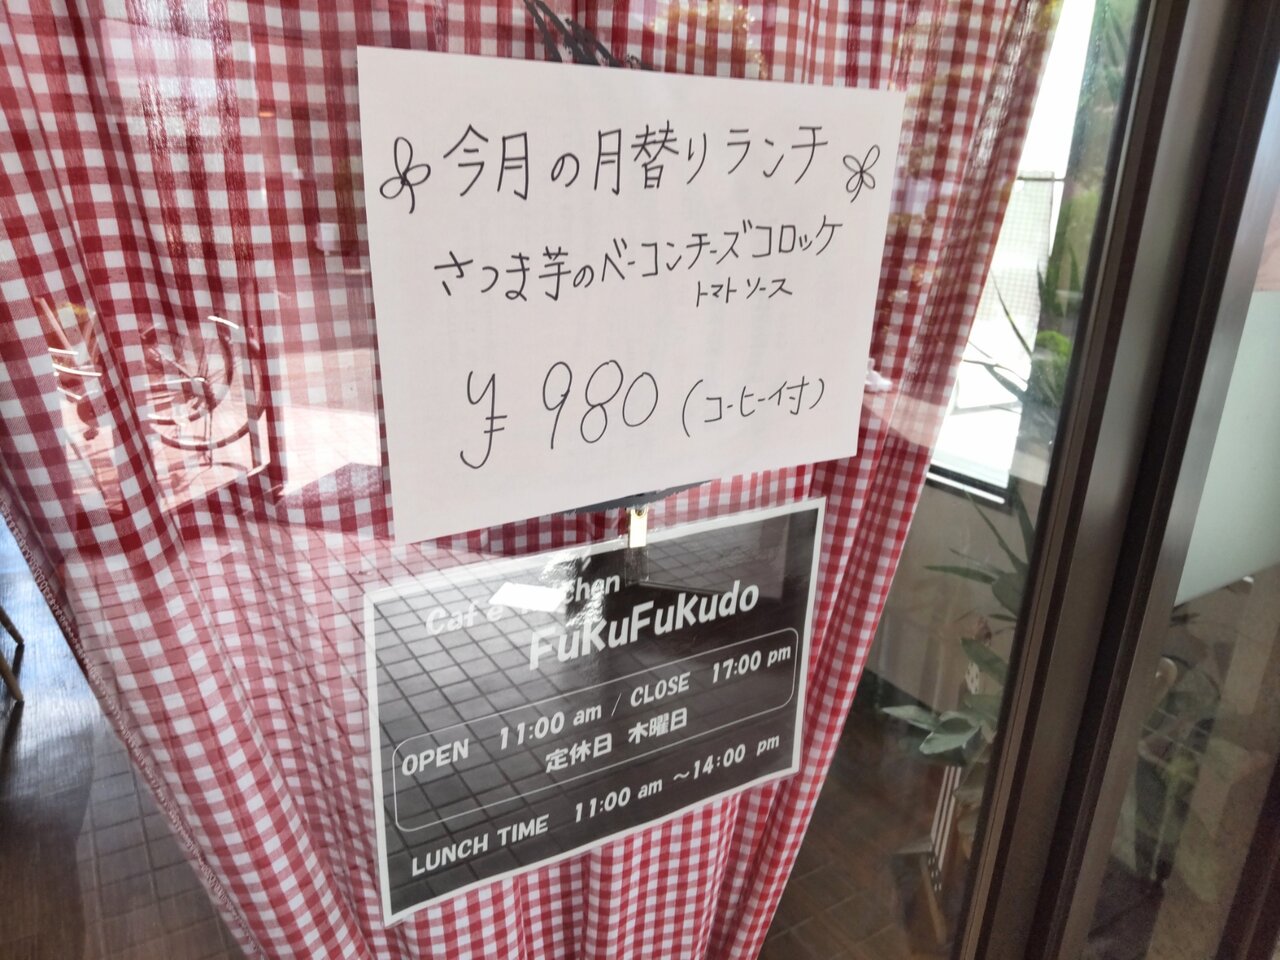 今月の月替りランチ
さつま芋のベーコンチーズコロッケ
トマトソース
¥980(コーヒー付)
Café
FuKuFuKudo
OPEN 11:00 am / CLOSE 17:00 pm
定休日 木曜日
LUNCH TIME 11:00 am ～14:00 pm